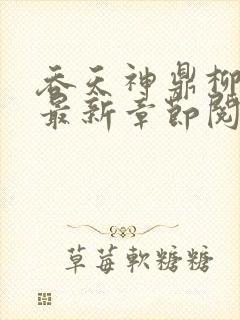 吞天神鼎柳
最新章節閱
草莓軟糖糖